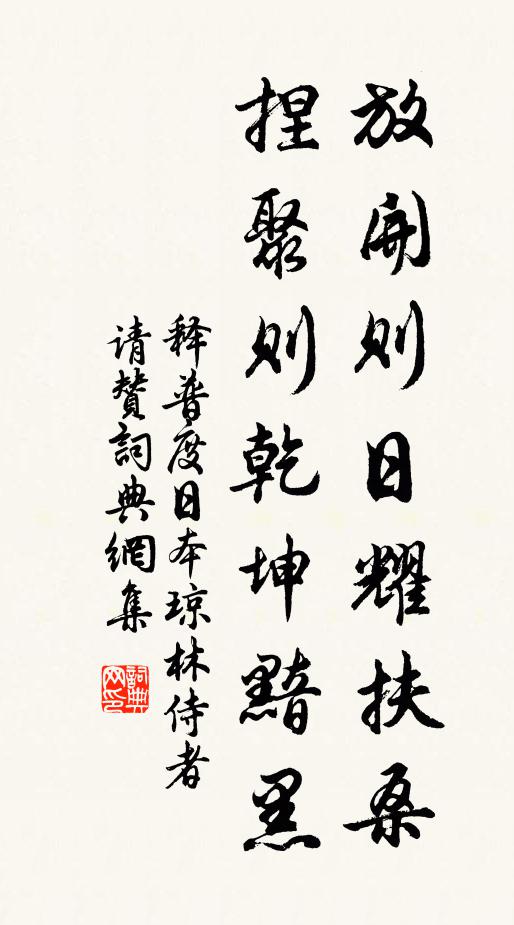 放開则日耀扶桑
捏聚则乾坤黯黑
释普度日本琼林侍者
请赞詞典網集
詞典网印